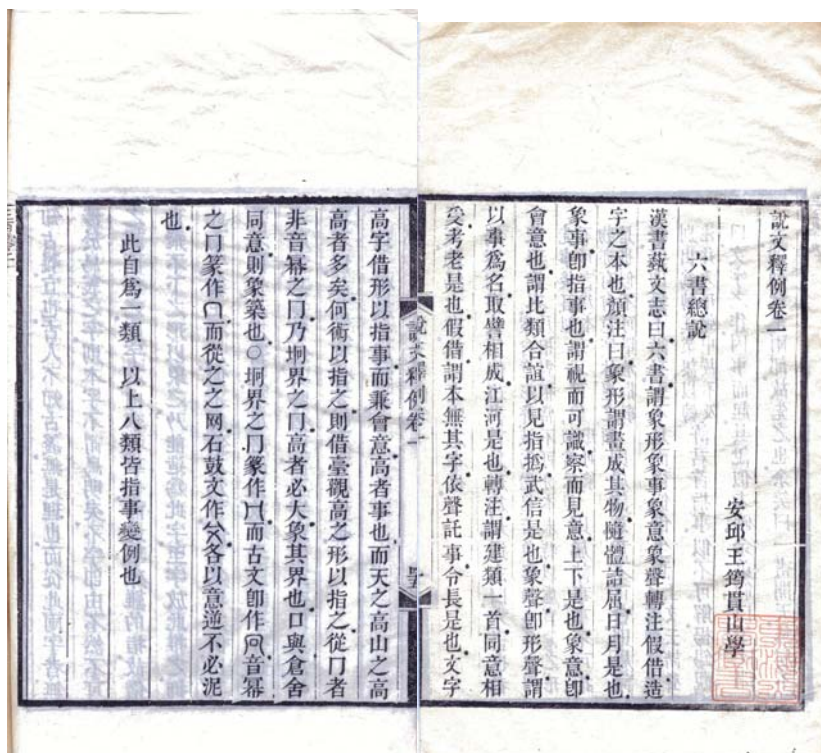 說文釋例卷一
安邱王筠貫山學
六書總說
漢書蓺文志曰六書謂象形象事象意象聲轉注假借造
字之本也顏注曰象形謂畫成其物隨體詰屈日月是也
象事卽指事也謂視而可識察而見意上下是也象意卽
會意也謂比類合誼以見指撝武信是也象聲卽形聲謂
以事爲名取譬相成江河是也轉注謂建類一首同意相
受考老是也假借謂本無其字依聲託事令長是也文字
說文釋例卷一
高字借形以指事而兼會意高者事也而天之高山之高
高者多矣何術以指之則借臺觀高之形以指之從冂者
非音冪之冖乃坰界之冂高者必大象其界也口與倉舍
同意則象築也○坰界之冂篆作而古文卽作冋音冪
之冖篆作而從之之网石鼓文作各以意逆不必泥
也
此自爲一類 以上八類皆指事變例也